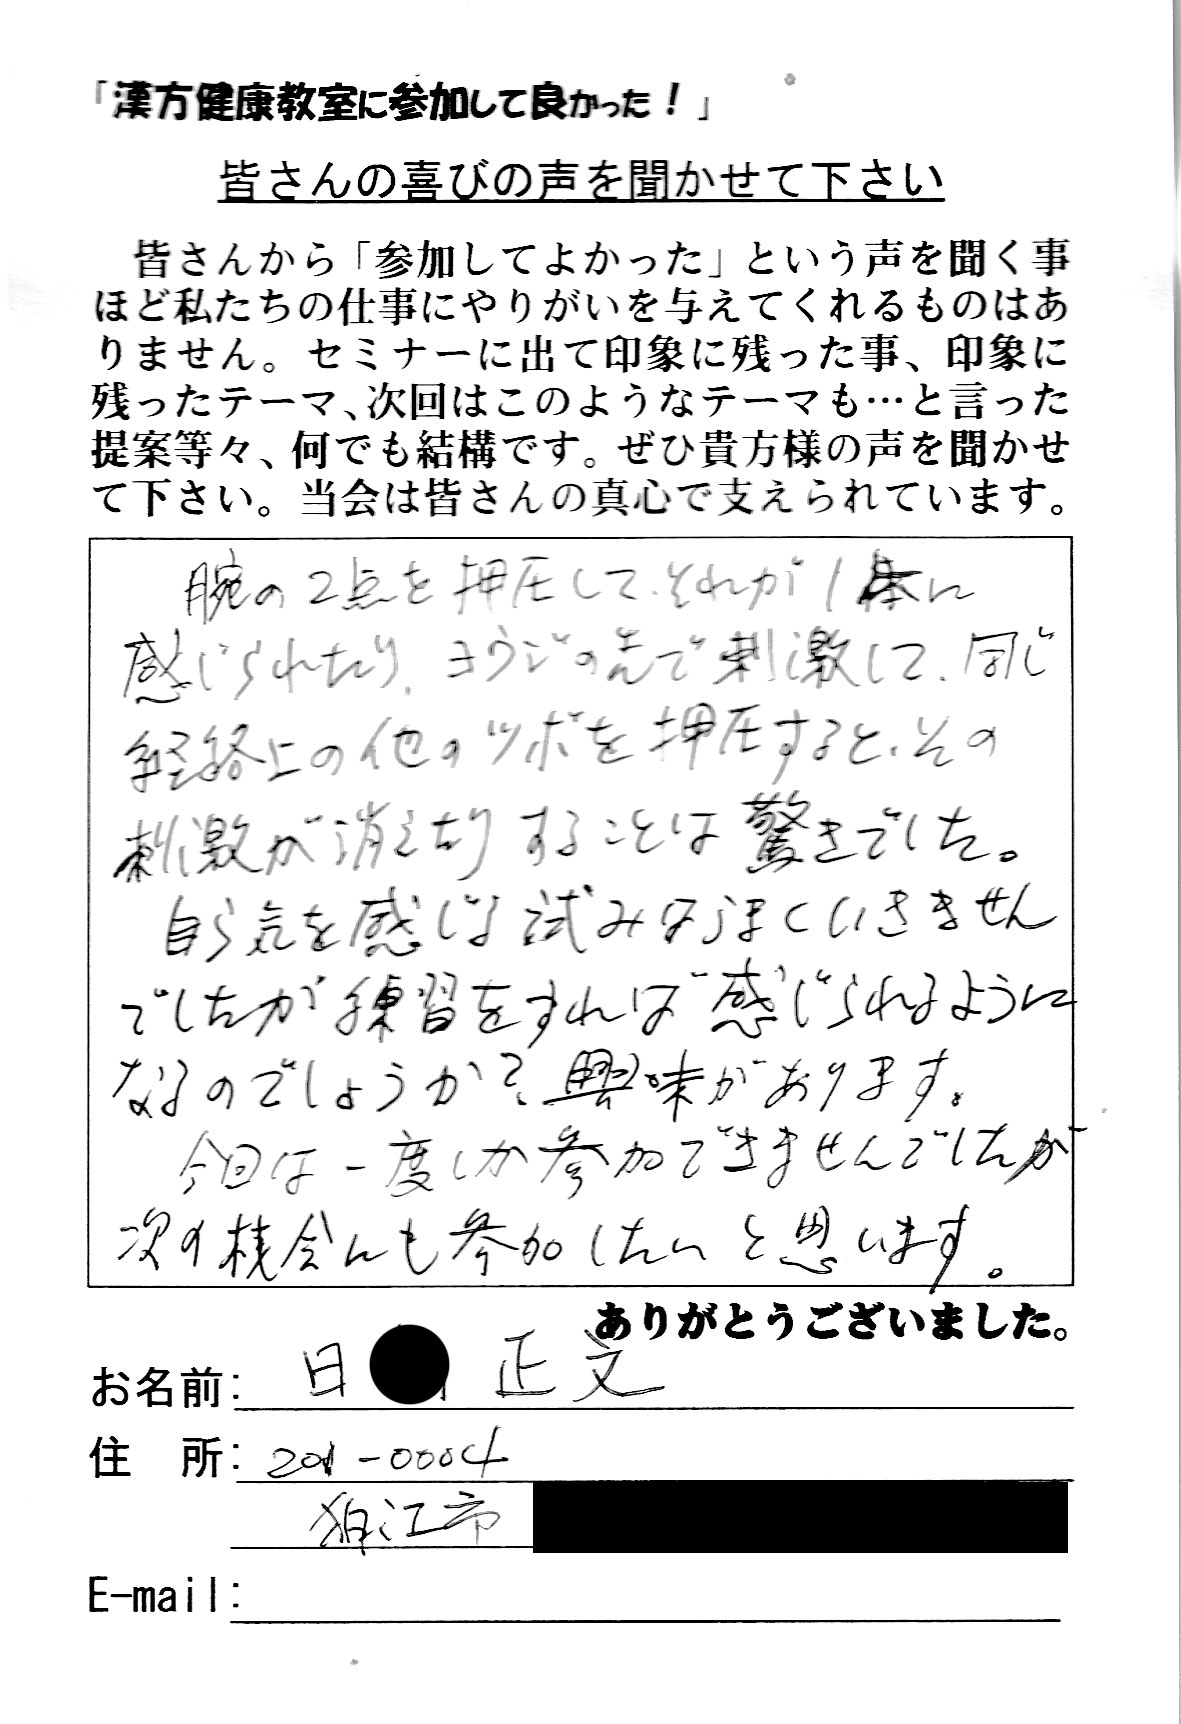 「漢方健康教室に参加して良かった！」
皆さんの喜びの声を聞かせて下さい
皆さんから「参加してよかった」という声を聞く事
ほど私たちの仕事にやりがいを与えてくれるものはあ
りません。セミナーに出て印象に残った事、印象に
残ったテーマ、次回はこのようなテーマも…と言った
提案等々、何でも結構です。ぜひ貴方様の声を聞かせ
て下さい。当会は皆さんの真心で支えられています。
腕の2点を押圧して、それが1本に
感じられたり、ヨウジの先で刺激して、同じ
経絡上の他のツボを押圧すると、その
刺激が消えたりすることは驚きでした。
自ら気を感じる試みはうまくいきません
でしたが練習をすれば感じられるように
なるのでしょうか?、興味があります。
今回は一度しか参加できませんでしたが
次の機会にも参加したいと思います。
ありがとうございました。
お名前: 日 正文
住 所: 201-0004
狛江市
E-mail: